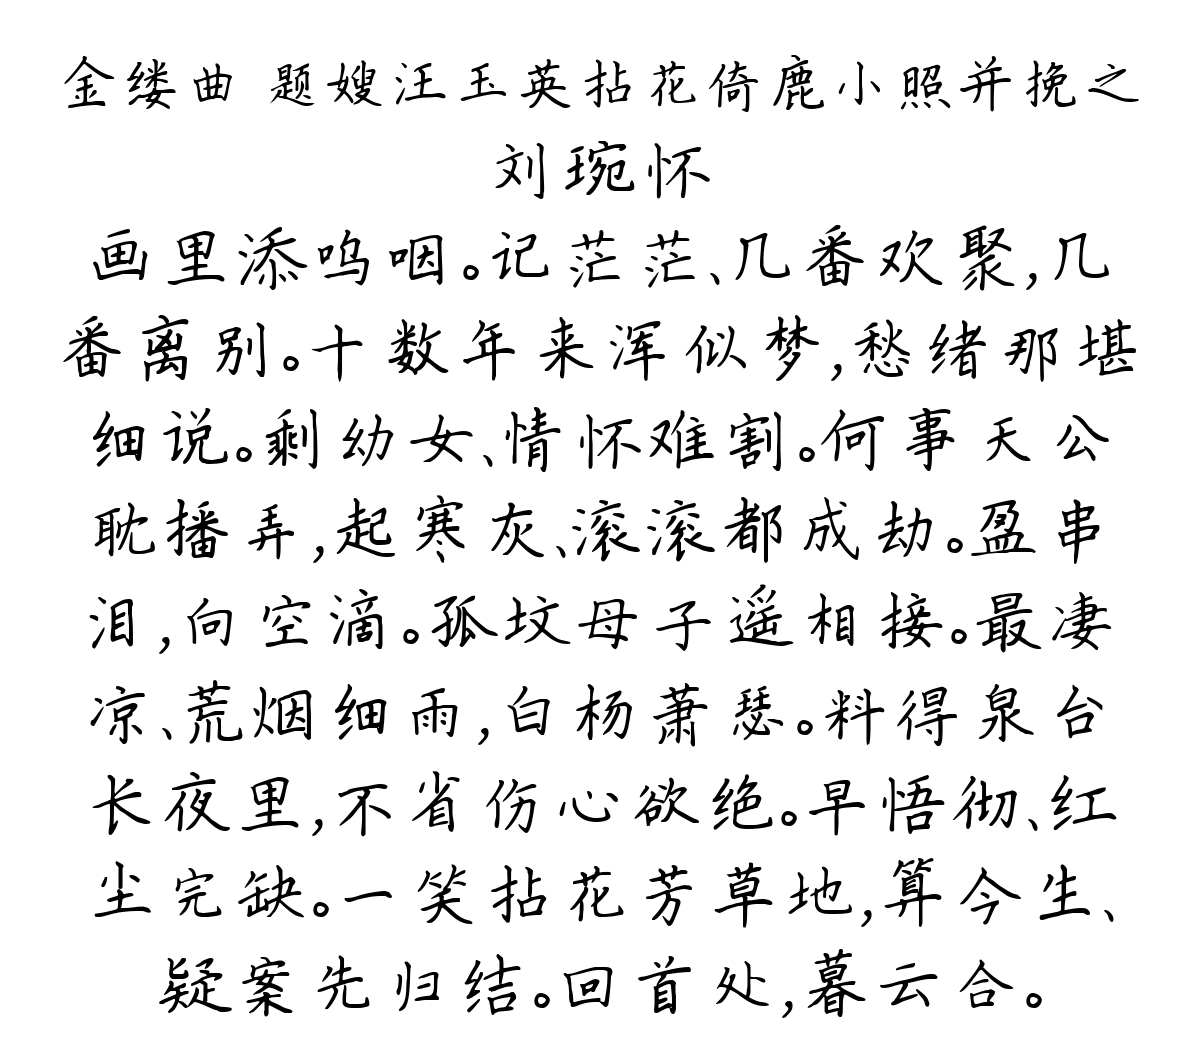 金缕曲 题嫂汪玉英拈花倚鹿小照并挽之
刘琬怀
画里添呜咽。记茫茫、几番欢聚,几
番离别。十数年来浑似梦,愁绪那堪
细说。剩幼女、情怀难割。何事天公
耽播弄,起寒灰、滚滚都成劫。盈串
泪,向空滴。孤坟母子遥相接。最凄
凉、荒烟细雨,白杨萧瑟。料得泉台
长夜里,不省伤心欲绝。早悟彻、红
尘完缺。一笑拈花芳草地,算今生、
疑案先归结。回首处,暮云合。